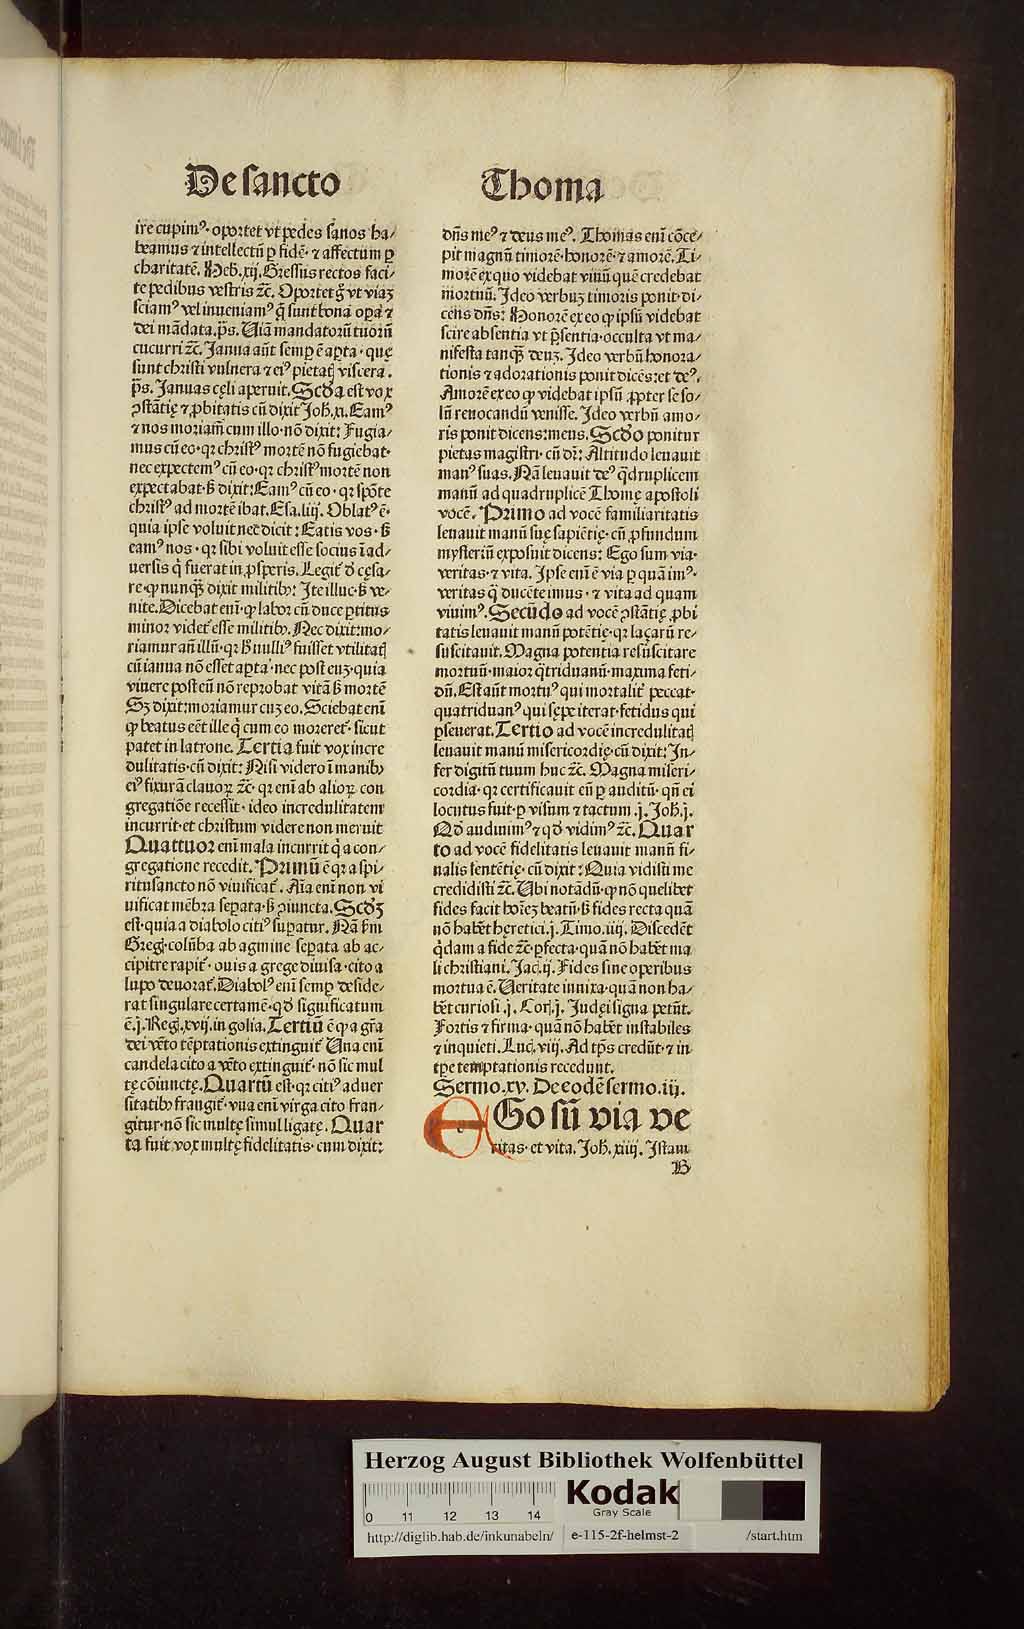 De sancto
Thoma
ire cupimꝰ· oportet vt pedes sanos ha/
beamus ⁊ intellectū ꝑ fidē· ⁊ affectum ꝑ
charitatē. Heb. xij. Gressus rectos faci/
te pedibus vestris ⁊c̄. Oportet g̊ vt viaʒ
sciamꝰ vel inueniamꝰ q̄ sunt bona oꝑa ⁊
dei mādata. p̄s. Uiā mandatorū tuorū
cucurri ⁊c̄. Janua aūt semꝑ ē aꝑta· quę
sunt christi vulnera ⁊ eiꝰ pietatꝭ viscera.
p̄s. Januas cęli aperuit. Scďa est vox
ꝯstātię ⁊ ꝓbitatis cū dixit Joh̄. xi. Eamꝰ
⁊ nos moriam̄ cum illo· nō dixit: Fugia/
mus cū eo· qꝛ christꝰ mortē nō fugiebat·
nec expectemꝰ cū eo· qꝛ christꝰ mortē non
expectabat· ẜ dixit: Eamꝰ cū eo· qꝛ spōte
christꝰ ad mortē ibat. Esa. liij. Oblatꝰ ē·
quia ipse voluit nec dicit: Eatis vos· ẜ
eamꝰ nos· qꝛ sibi voluit esse socius ī ad/
uersis q̇ fuerat in ꝓsperis. Legit᷑ ď cęsa/
re· ꝙ nunqꝫ dixit militibꝰ: Ite illuc· ẜ ve/
nite. Dicebat enī· ꝙ labor cū duce ꝑtitus
minor videt᷑ esse militibꝰ. Nec dixit: mo/
riamur añ illū· qꝛ ẜ nulliꝰ fuisset vtilitatꝭ
cū ianua nō esset aꝑta· nec post euʒ· quia
viuere post eū nō reprobat vitā ẜ mortē
Sʒ dixit: moriamur cuʒ eo. Sciebat enī
ꝙ beatus eēt ille q̇ cum eo moreret᷑· sicut
patet in latrone. Tertia fuit vox incre
dulitatis· cū dixit: Nisi videro ī manibꝰ
eiꝰ fixurā clauoꝝ ⁊c̄· qꝛ enī ab alioꝝ con
gregatiōe recessit· ideo incredulitatem
incurrit· et christum videre non meruit
Quattuor enī mala incurrit q̇ a con/
gregatione recedit. Primū ē qꝛ a spi/
ritusancto nō viuificat᷑. Aīa enī non vi
uificat mēbra seꝑata· ẜ ꝯiuncta. Scďʒ
est· quia a diabolo citiꝰ suꝑatur. Nā ẜm
Greg̃. colūba ab agmine seꝑata ab ac/
cipitre rapit᷑· ouis a grege diuisa· cito a
lupo deuorat᷑. Diabolꝰ enī semꝑ deside/
rat singulare certamē· qď significatum
ē. j. Reg̃. xvij. in golia. Tertiū ē ꝙ a gr̄a
dei vēto tēptationis extinguit᷑ Una enī
candela cito a vēto extinguit᷑· nō sic mul
tę cōiunctę. Quartū est· qꝛ citiꝰ aduer
sitatibꝰ frangit᷑· vna enī virga cito fran/
gitur· nō sic multę simul ligatę. Quar
ta fuit vox multę fidelitatis· cum dixit:
dn̄s meꝰ ⁊ deus meꝰ. Thomas enī cōce/
pit magnū timorē· honorē· ⁊ amorē. Ti/
morē ex quo videbat viuū quē credebat
mortuū. Ideo verbuʒ timoris ponit· di/
cens dn̄s: Honorē ex eo ꝙ ipsū videbat
scire absentia vt p̄sentia· occulta vt ma/
nifesta tanqꝫ deuʒ. Ideo verbū honora/
tionis ⁊ adorationis ponit dicēs: et deꝰ.
Amorē ex eo ꝙ videbat ipsū ꝓpter se so/
lū reuocandū venisse. Ideo verbū amo/
ris ponit dicens: meus. Scďo ponitur
pietas magistri· cū dr̄: Altitudo leuauit
manꝰ suas. Nā leuauit deꝰ q̈druplicem
manū ad quadruplicē Thomę apostoli
vocē. Primo ad vocē familiaritatis
leuauit manū suę sapiētię· cū ꝓfundum
mysteriū exposuit dicens: Ego sum via·
veritas· ⁊ vita. Ipse enī ē via ꝑ quā imꝰ·
veritas q̄ ducēte imus· ⁊ vita ad quam
viuimꝰ. Secūdo ad vocē ꝯstātię ꝓbi
tatis leuauit manū potētię· qꝛ lazarū re/
suscitauit. Magna potentia resuscitare
mortuū· maior q̈triduanū· maxima feti/
dū. Est aūt mortuꝰ qui mortalit᷑ peccat·
quatriduanꝰ qui sępe iterat· fetidus qui
ꝑseuerat. Tertio ad vocē incredulitatꝭ
leuauit manū misericordię· cū dixit: In/
fer digitū tuum huc ⁊c̄. Magna miseri/
cordia· qꝛ certificauit eū ꝑ auditū· qn̄ ei
locutus fuit· ꝑ visum ⁊ tactum. j. Joh̄. j.
Qď audiuimꝰ ⁊ qď vidimꝰ ⁊c̄. Quar
to ad vocē fidelitatis leuauit manū fi/
nalis sententię· cū dixit: Quia vidisti me
credidisti ⁊c̄. Ubi notādū· ꝙ nō quelibet
fides facit hoīeʒ beatū· ẜ fides recta quā
nō habēt hęretici. j. Timo. iiij. Discedēt
q̇dam a fide ⁊c̄· ꝑfecta· quā nō habēt ma
li christiani. Jac̄. ij. Fides sine operibus
mortua ē. Ueritate innixa· quā non ha/
bēt curiosi. j. Cor̄. j. Judęi signa petūt.
Fortis ⁊ firma· quā nō habēt instabiles
⁊ inquieti. Luc̄. viij. Ad tp̄s credūt· ⁊ in
tp̄e temptationis recedunt.
Sermo. xv. De eodē sermo. iij.
EGo sū via ve
ritas· et vita. Joh̄. xiiij. Istam
B
Herzog August Bibliothek Wolfenbüttel
0 11 12 13 14
Kodak
Gray Scale
http://diglib.hab.de/inkunabeln/ e-115-2f-helmst-2 /start.htm